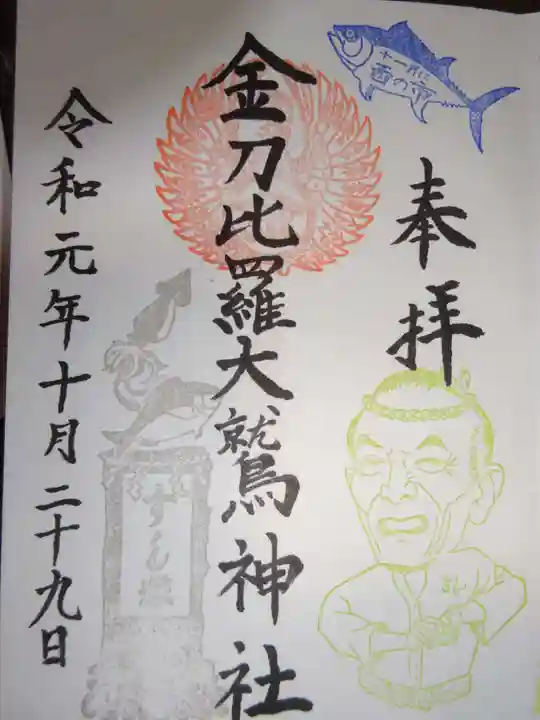 奉拝
金刀比羅大鷲神社
令和元年十月二十九日
十一月は
酉の市
すくも塚